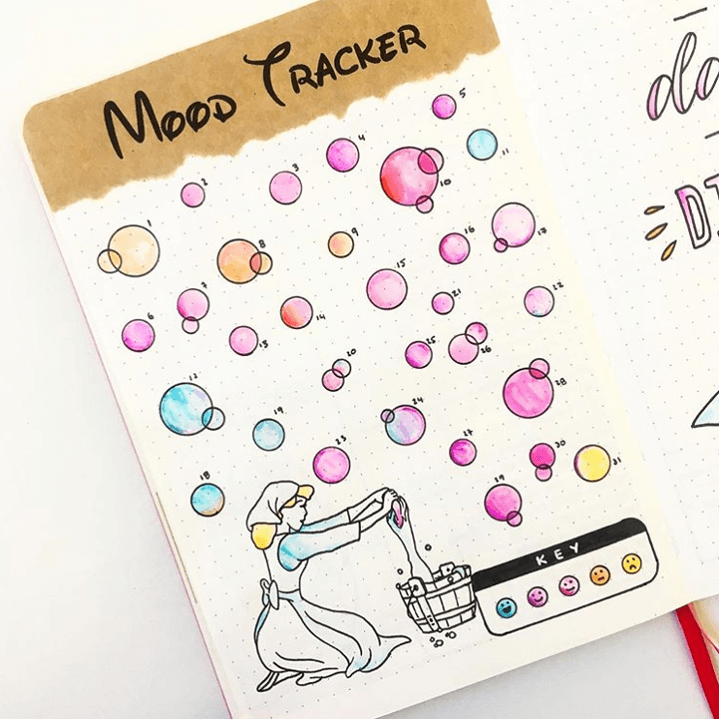 MOOD TRACKER
1
2
3
4
5
6
7
8
9
10
11
12
13
14
15
16
17
18
19
20
21
22
23
24
25
26
27
28
19
30
31
KEY
da
DI